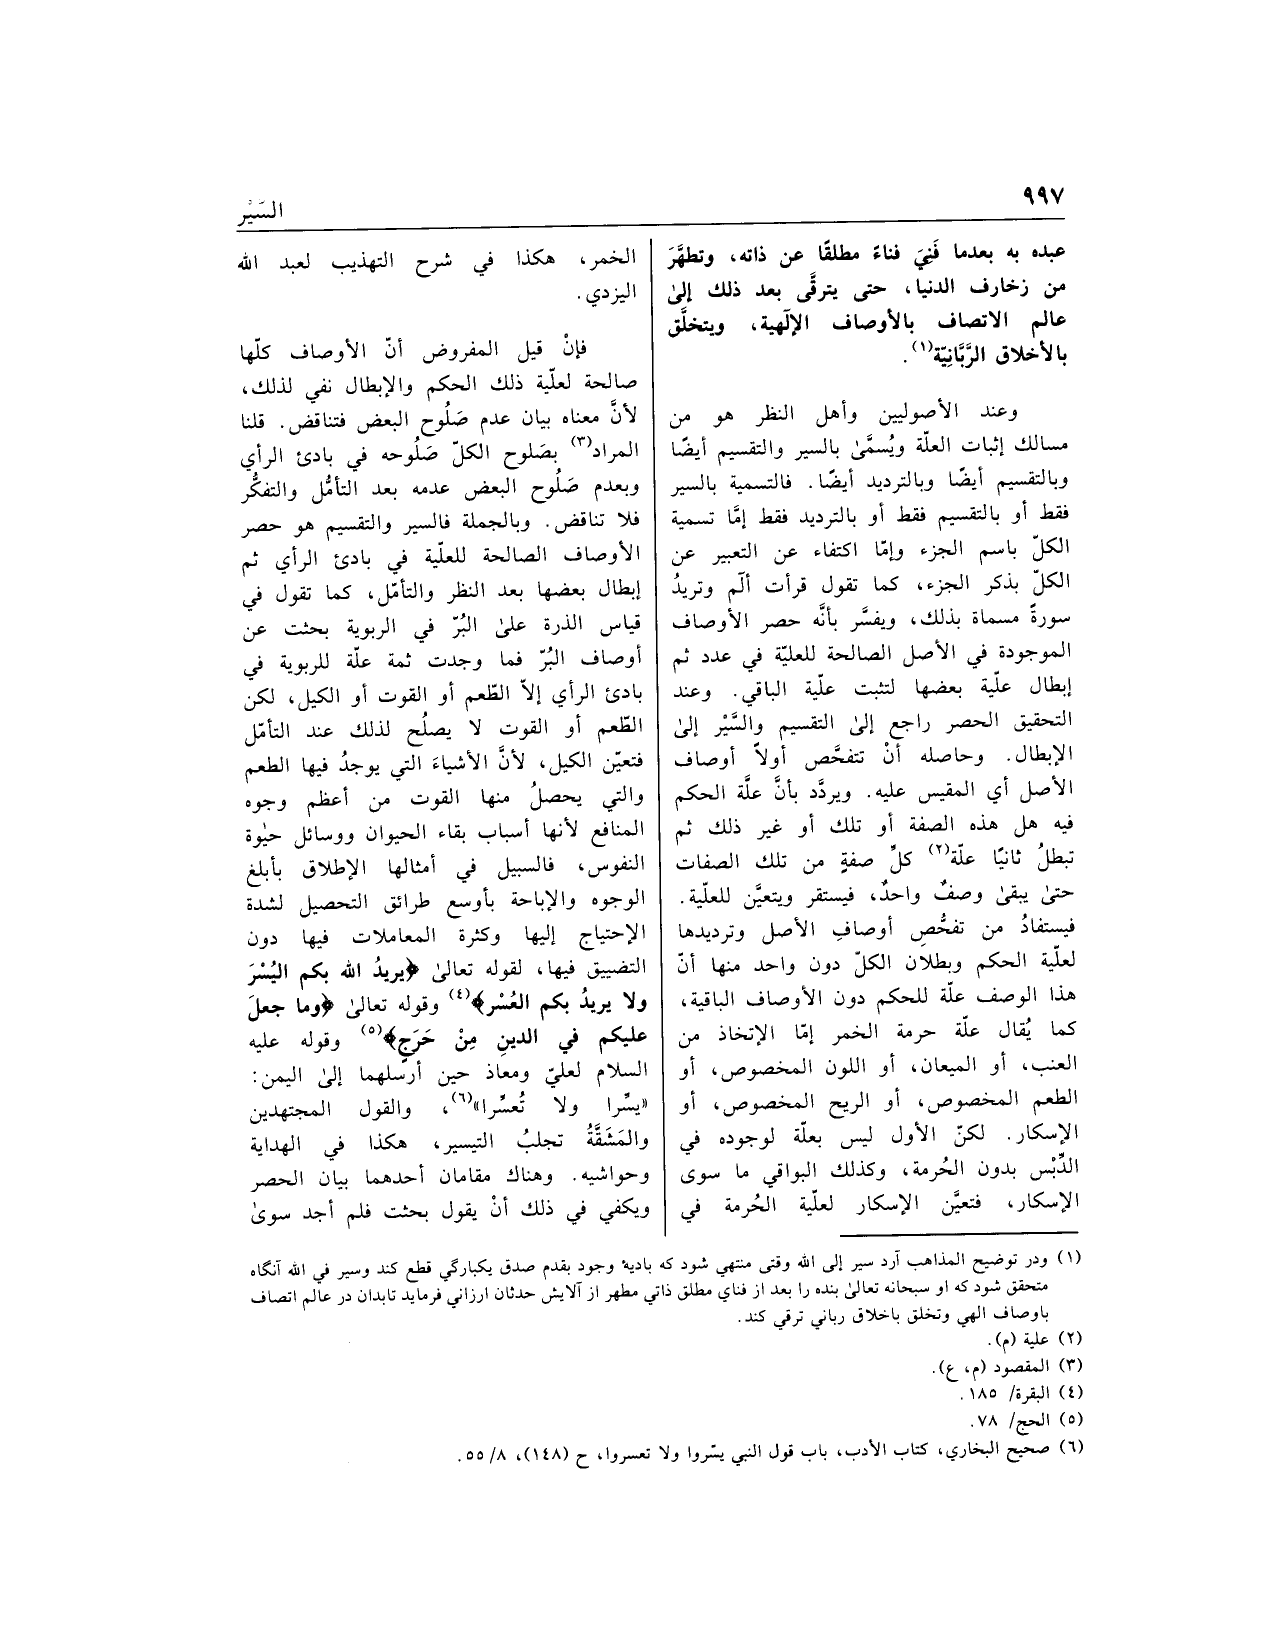 ٩٩٧
السَّيْر
عبده به بعدما فَنِيَ فناءً مطلقًا عن ذاته، وتطهَّرَ
من زخارف الدنيا، حتى يترقَّى بعد ذلك إلىٰ
عالم الاتصاف بالأوصاف الإلٓهية، ويتخلَّق
بالأخلاق الرَّبَّانِيّة(١).
وعند الأصوليين وأهل النظر هو من
مسالك إثبات العلّة ويُسمَّىٰ بالسير والتقسيم أيضًا
وبالتقسيم أيضًا وبالترديد أيضًا. فالتسمية بالسير
فقط أو بالتقسيم فقط أو بالترديد فقط إمَّا تسمية
الكلّ باسم الجزء وإمّا اكتفاء عن التعبير عن
الكلّ بذكر الجزء، كما تقول قرأت ألٓم وتريدُ
سورةً مسماة بذلك، ويفسَّر بأنَّه حصر الأوصاف
الموجودة في الأصل الصالحة للعليّة في عدد ثم
إبطال علّية بعضها لتثبت علّية الباقي. وعند
التحقيق الحصر راجع إلىٰ التقسيم والسَّيْر إلىٰ
الإبطال. وحاصله أنْ تتفحَّص أولاً أوصاف
الأصل أي المقيس عليه. ويردَّد بأنَّ علَّة الحكم
فيه هل هذه الصفة أو تلك أو غير ذلك ثم
تبطلُ ثانيًا علّة(٢) كلِّ صفةٍ من تلك الصفات
حتىٰ يبقىٰ وصفٌ واحدٌ، فيستقر ويتعيَّن للعلّية.
فيستفادُ من تفحُّصِ أوصافِ الأصل وترديدها
لعلّية الحكم وبطلان الكلّ دون واحد منها أنّ
هذا الوصف علّة للحكم دون الأوصاف الباقية،
كما يُقال علّة حرمة الخمر إمّا الإتخاذ من
العنب، أو الميعان، أو اللون المخصوص، أو
الطعم المخصوص، أو الريح المخصوص، أو
الإسكار. لكنّ الأول ليس بعلّة لوجوده في
الدِّبْس بدون الحُرمة، وكذلك البواقي ما سوى
الإسكار، فتعيَّن الإسكار لعلّية الحُرمة في
الخمر، هكذا في شرح التهذيب لعبد الله
اليزدي.
فإنْ قيل المفروض أنّ الأوصاف كلّها
صالحة لعلّية ذلك الحكم والإبطال نفي لذلك،
لأنَّ معناه بيان عدم صَلُوح البعض فتناقض. قلنا
المراد(٣) بصَلوح الكلّ صَلُوحه في بادئ الرأي
وبعدم صَلُوح البعض عدمه بعد التأمُّل والتفكُّر
فلا تناقض. وبالجملة فالسير والتقسيم هو حصر
الأوصاف الصالحة للعلّية في بادئ الرأي ثم
إبطال بعضها بعد النظر والتأمّل، كما تقول في
قياس الذرة علىٰ البُرّ في الربوية بحثت عن
أوصاف البُرّ فما وجدت ثمة علّة للربوية في
بادئ الرأي إلاّ الطّعم أو القوت أو الكيل، لكن
الطّعم أو القوت لا يصلُح لذلك عند التأمّل
فتعيّن الكيل، لأنَّ الأشياءَ التي يوجدُ فيها الطعم
والتي يحصلُ منها القوت من أعظم وجوه
المنافع لأنها أسباب بقاء الحيوان ووسائل حيٰوة
النفوس، فالسبيل في أمثالها الإطلاق بأبلغ
الوجوه والإباحة بأوسع طرائق التحصيل لشدة
الإحتياج إليها وكثرة المعاملات فيها دون
التضييق فيها، لقوله تعالىٰ ﴿يريدُ الله بكم اليُسْرَ
ولا يريدُ بكم العُسْر﴾(٤) وقوله تعالىٰ ﴿وما جعلَ
عليكم في الدينِ مِنْ حَرَجٍ﴾(٥) وقوله عليه
السلام لعليّ ومعاذ حين أرسلهما إلىٰ اليمن:
«يسِّرا ولا تُعسِّرا»(٦)، والقول المجتهدين
والمَشَقَّةُ تجلبُ التيسير، هكذا في الهداية
وحواشيه. وهناك مقامان أحدهما بيان الحصر
ويكفي في ذلك أنْ يقول بحثت فلم أجد سوىٰ
(١) ودر توضيح المذاهب آرد سير إلى الله وقتى منتهي شود كه باديهٔ وجود بقدم صدق يكبارگي قطع كند وسير في الله آنگاه
متحقق شود كه او سبحانه تعالىٰ بنده را بعد از فناي مطلق ذاتي مطهر از آلايش حدثان ارزاني فرمايد تابدان در عالم اتصاف
باوصاف الهي وتخلق باخلاق رباني ترقي كند.
(٢) علية (م).
(٣) المقصود (م، ع).
(٤) البقرة/ ١٨٥.
(٥) الحج/ ٧٨.
(٦) صحيح البخاري، كتاب الأدب، باب قول النبي يسّروا ولا تعسروا، ح (١٤٨)، ٨/ ٥٥.